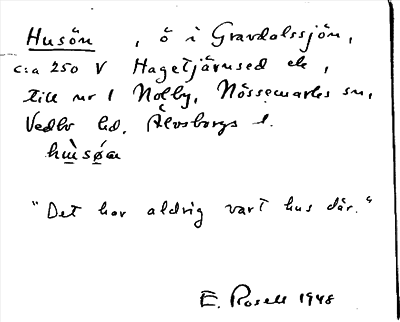 Husön, ö i Gravdalssjön,
c:a 250 V Hagetjärnsed ek,
till nr 1 Nolby, Nössemarks sn,
Vedbo hd, Älvsborgs l.
hùsø̀n
"Det har aldrig vart hus där."
E. Rosell 1948